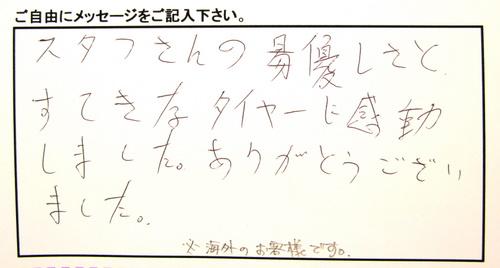 ご自由にメッセージをご記入下さい。
スタフさんの優しさと
すてきなタイヤーに感動
しました。ありがとうござい
ました。
※海外のお客様です。